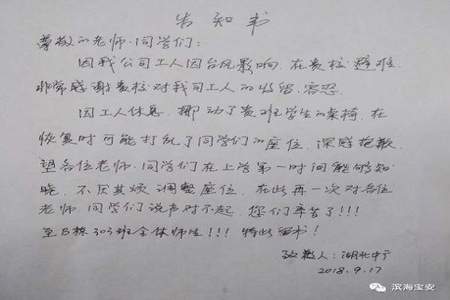 告知书
尊敬的老师、同学们:
因我公司工人因台风影响,在贵校避难
非常感谢贵校对我司工人的收留、容忍
因工人休息,挪动了贵班学生的桌椅,在
恢复时可能打乱了同学们的座位,深感抱歉
望各位老师、同学们在上学第一时间能够知
晓,不厌其烦调整座位,在此再一次对各位
老师、同学们说声对不起,您们辛苦了!!!
至B栋303班全体师生!!! 特此留书!
致歉人:湖北中宁
2018.9.17
滨海宝安